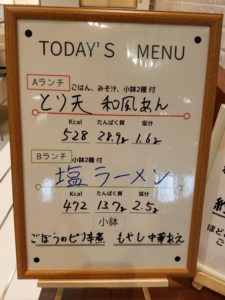 TODAY'S MENU
Aランチ ごはん、みそ汁、小鉢2種 付
とり天 和風あん
Kcal たんぱく質 塩分
528 28.9g 1.6g
Bランチ 小鉢2種 付
塩ラーメン
Kcal たんぱく質 塩分
472 13.7g 2.5g
小鉢
ごぼうのピリ辛煮 もやし中華あえ